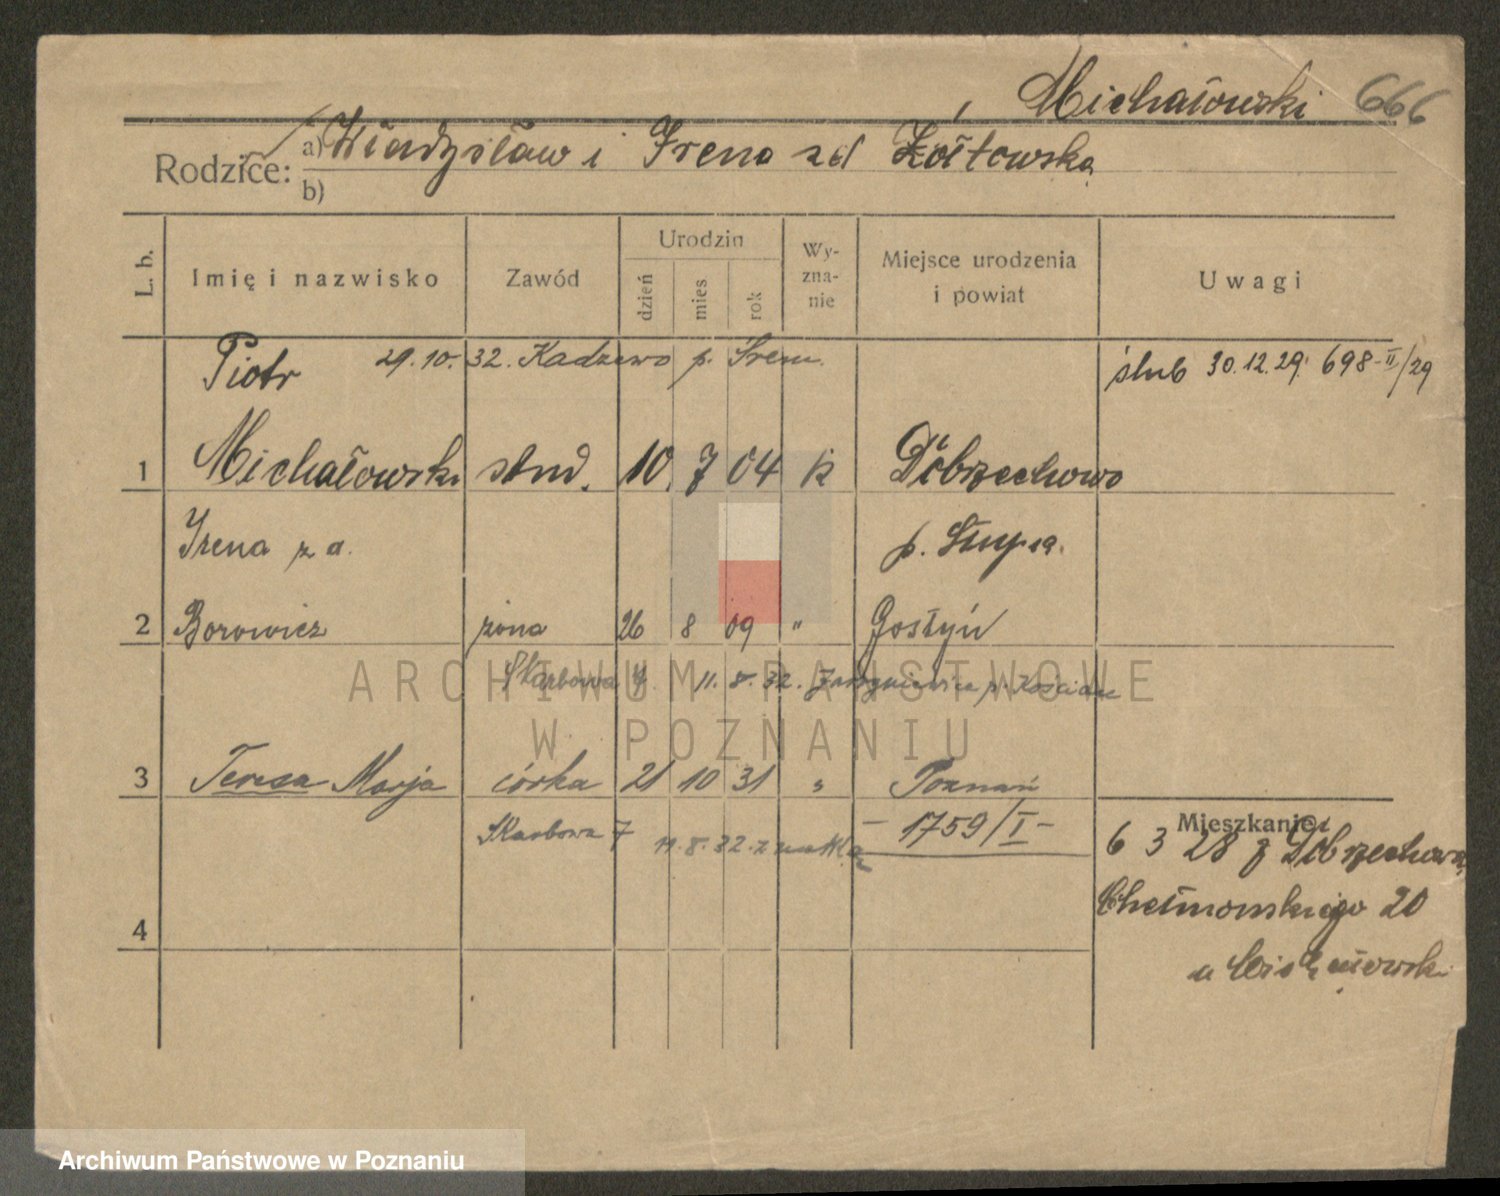 Michałowski 666
Rodzice: a) Władysław i Irena zd Żółtowska
b)
L. b. Imię i nazwisko Zawód Urodzin dzień mies rok Wy-zna-nie Miejsce urodzenia i powiat Uwagi
Piotr 29.10.32. Kadzewo p. Śrem. ślub 30.12.29. 698-II/29
1 Michałowski stud. 10. 7 04 k Dobrzechowo
Irena z d.
2 Borowicz żona 26 8 09 " Gostyń
Skarbowa 7. 11.8.32. p. Kościan
3 Teresa Marja córka 21 10 31 " Poznań
Skarbowa 7 11.8.32. z - 1759/I -
Mieszkanie:
6 3 28 z Dobrzechowa
Chełmońskiego 20
4
u Michałowski
ARCHIWUM PAŃSTWOWE
W POZNANIU
Archiwum Państwowe w Poznaniu